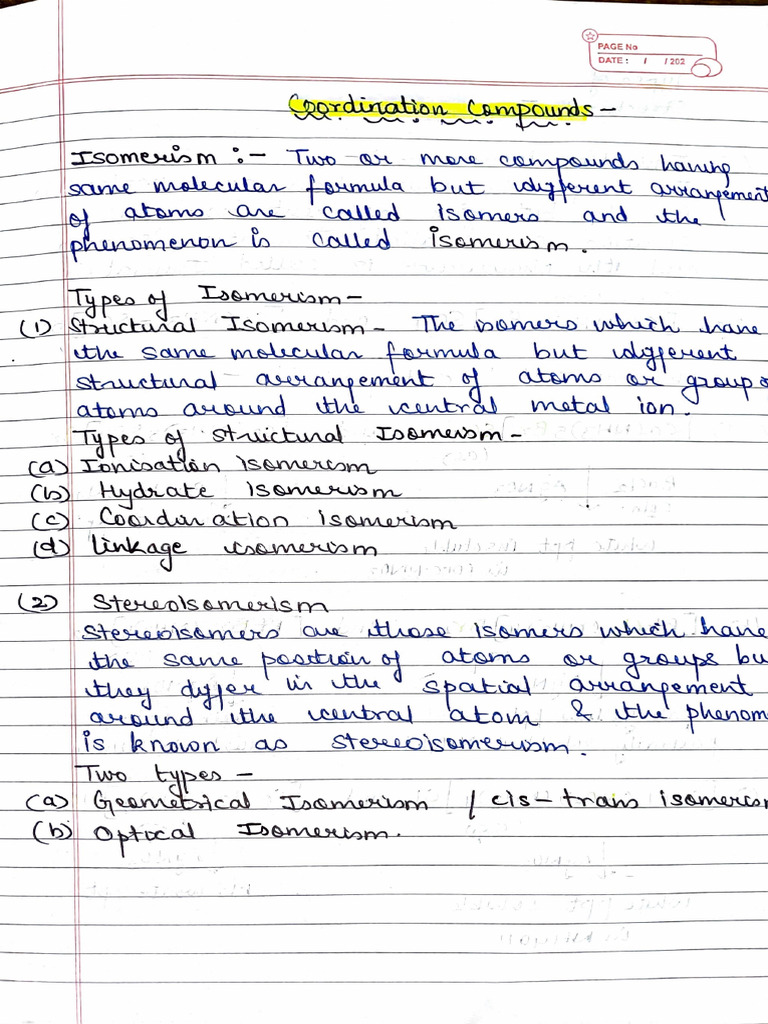 PAGE No
DATE : / / 202
Coordination Compounds -
Isomerism :- Two or more compounds having
same molecular formula but different arrangement
of atoms are called isomers and the
phenomenon is called isomerism.
Types of Isomerism -
(1) Structural Isomerism - The isomers which have
the same molecular formula but different
structural arrangement of atoms or group o
atoms around the central metal ion.
Types of structural Isomerism -
(a) Ionisation isomerism
(b) Hydrate isomerism
(c) Coordination isomerism
(d) linkage isomerism
(2) Stereoisomerism
Stereoisomers are those isomers which have
the same position of atoms or groups bu
they differ in the spatial arrangement
around the central atom & the phenom
is known as stereoisomerism.
Two types -
(a) Geometrical Isomerism / cis-trans isomerism
(b) Optical Isomerism.